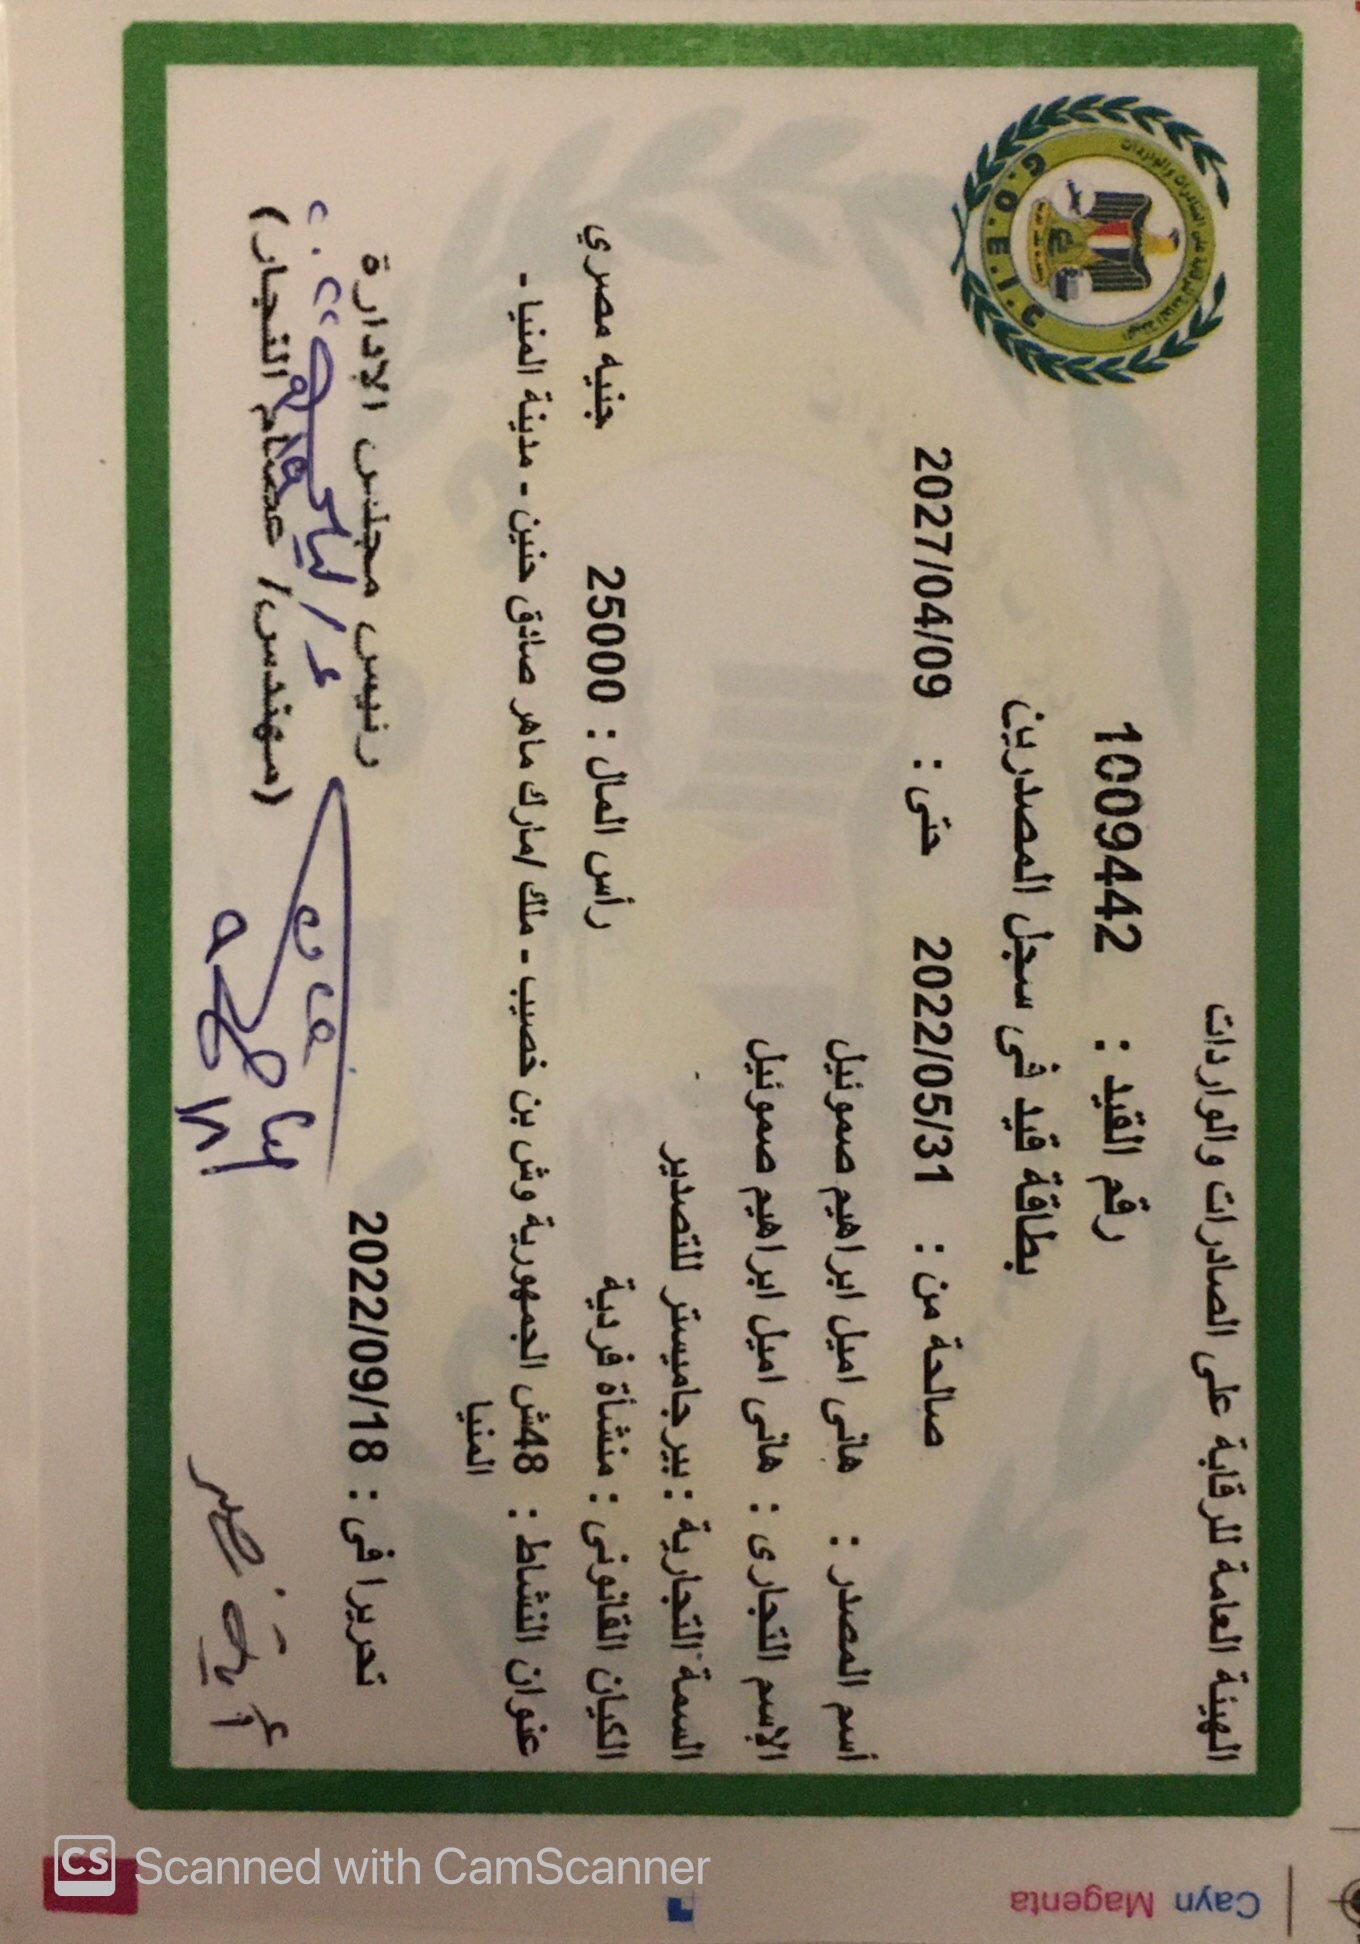 الهيئة العامة للرقابة على الصادرات والواردات
G.O.E.I.C
رقم القيد : 1009442
بطاقة قيد فى سجل المصدرين
صالحة من : 2022/05/31 حتى : 2027/04/09
أسم المصدر : هانى اميل ابراهيم صموئيل
الإسم التجارى : هانى اميل ابراهيم صموئيل
السمة التجارية : بيرجاميستر للتصدير
الكيان القانونى : منشأة فردية رأس المال : 25000 جنيه مصري
عنوان النشاط : 48ش الجمهورية وش بن خصيب - ملك /مارك ماهر صادق حنين - مدينة المنيا -
المنيا
تحريرا فى : 2022/09/18 رئيس مجلس الإدارة
(مهندس/ عصام النجار)
CS Scanned with CamScanner
Cayn Magenta